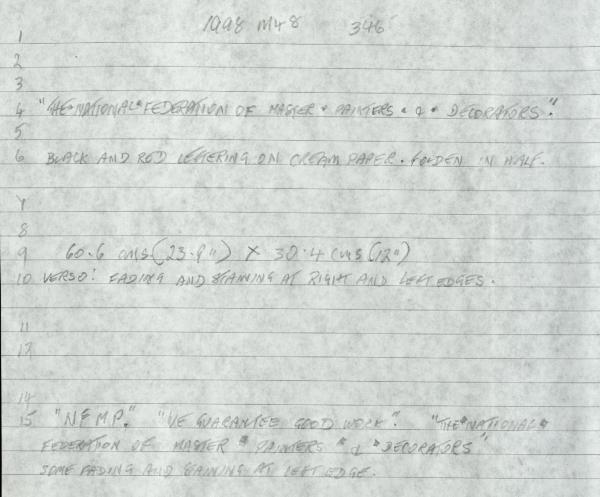 1998 M48 346
1
2
3
4 "THE•NATIONAL•FEDERATION OF MASTER • PAINTERS • & • DECORATORS".
5
6 BLACK AND RED LETTERING ON CREAM PAPER. FOLDEN IN HALF.
8
9 60.6 cms (23.9") X 30.4 cms (12")
10 VERSO: FADING AND STAINING AT RIGHT AND LEFT EDGES.
11
14
15 "NFMP." "WE GUARANTEE GOOD WORK". "THE•NATIONAL•
FEDERATION OF MASTER • PAINTERS • & • DECORATORS"
SOME FADING AND STAINING AT LEFT EDGE.